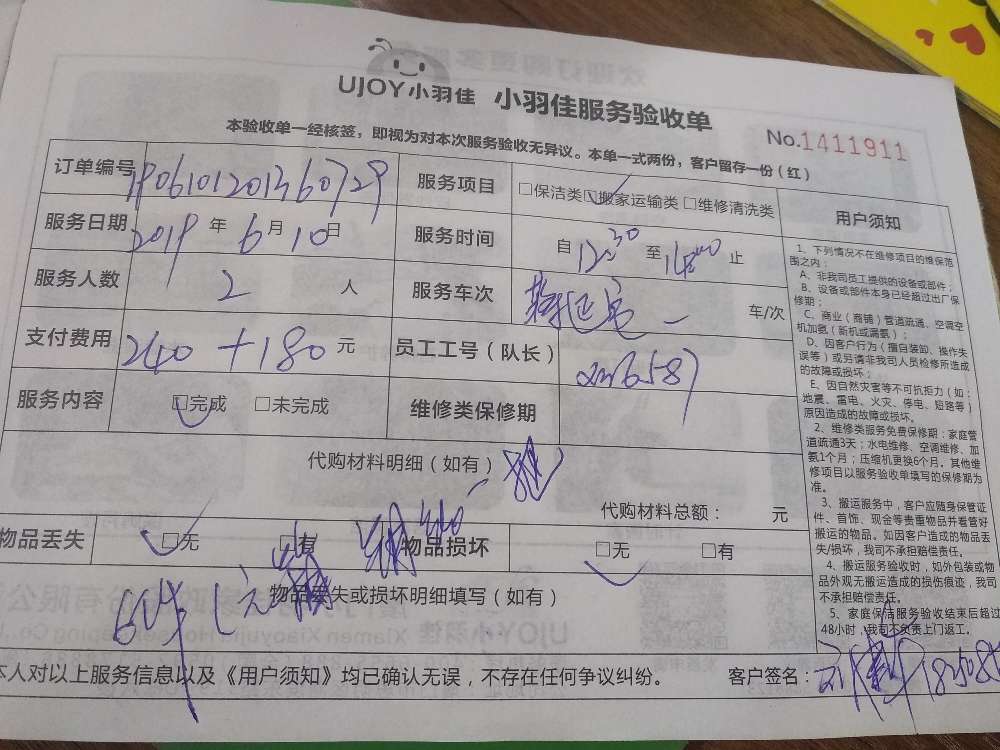 UJOY小羽佳 小羽佳服务验收单
No.1411911
本验收单一经核签，即视为对本次服务验收无异议。本单一式两份，客户留存一份（红）
订单编号
服务项目 □保洁类 □搬家运输类 □维修清洗类
服务日期 2019 年 6 月 10 日
服务时间 自 12:30 至 止
服务人数 2 人
服务车次 车/次
支付费用 240+180 元
员工工号（队长）
服务内容 □完成 □未完成
维修类保修期
代购材料明细（如有）
代购材料总额： 元
物品丢失 □无 □有
物品损坏 □无 □有
物品丢失或损坏明细填写（如有）
本人对以上服务信息以及《用户须知》均已确认无误，不存在任何争议纠纷。 客户签名：
用户须知
1、下列情况不在维修项目的维保范
围之内：
A、非我司员工提供的设备或部件；
B、设备或部件本身已经超过出厂保
修期；
C、商业（商铺）管道疏通、空调空
机加氨（新机或漏氨）；
D、因客户行为（擅自装卸、操作失
误等）或另请非我司人员检修所造成
的故障或损坏；
E、因自然灾害等不可抗拒力（如：
地震、雷电、火灾、停电、短路等）
原因造成的故障或损坏。
2、维修类服务免费保修期：家庭管
道疏通3天；水电维修、空调维修、加
氨1个月；压缩机更换6个月。其他维
修项目以服务验收单填写的保修期为
准。
3、搬运服务中，客户应随身保管证
件、首饰、现金等贵重物品并看管好
搬运的物品。如因客户造成的物品丢
失/损坏，我司不承担赔偿责任。
4、搬运服务验收时，如外包装或物
品外观无搬运造成的损伤痕迹，我司
不承担赔偿责任。
5、家庭保洁服务验收结束后超过
48小时，我司不负责上门返工。